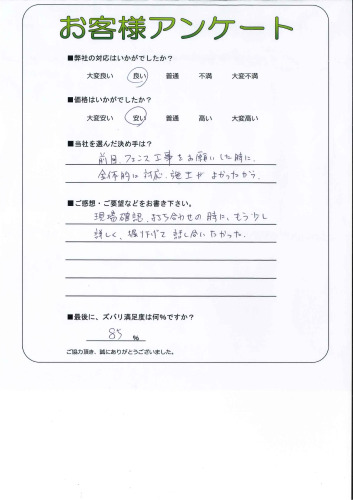 お客様アンケート
■弊社の対応はいかがでしたか?
大変良い 良い 普通 不満 大変不満
■価格はいかがでしたか?
大変安い 安い 普通 高い 大変高い
■当社を選んだ決め手は?
前回、フェンス工事をお願いした時に、
全体的に対応、施工がよかったから。
■ご感想・ご要望などをお書き下さい。
現場確認、打ち合わせの時に、もう少し
詳しく、掘り下げて話し合いたかった。
■最後に、ズバリ満足度は何%ですか?
85 %
ご協力頂き、誠にありがとうございました。